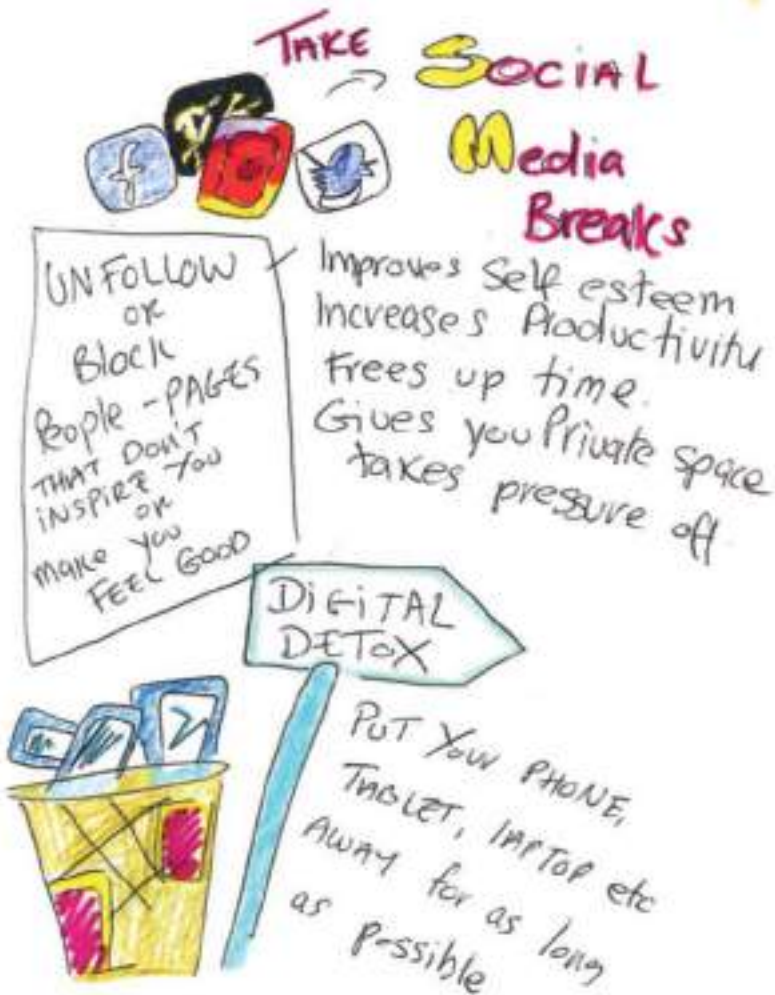 TAKE SOCIAL
Media
Breaks
f
UNFOLLOW
OR
Block
People - PAGES
THAT DON'T
INSPIRE YOU
OR
make you
FEEL GOOD
Improves Self esteem
Increases Productivity
Frees up time.
Gives you Private space
takes pressure off
DIGITAL
DETOX
PUT YOUR PHONE,
TABLET, LAPTOP etc
AWAY for as long
as possible